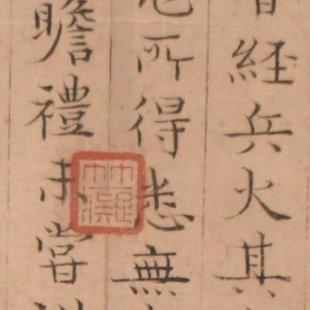 經兵火其
所得悉無
瞻禮未嘗